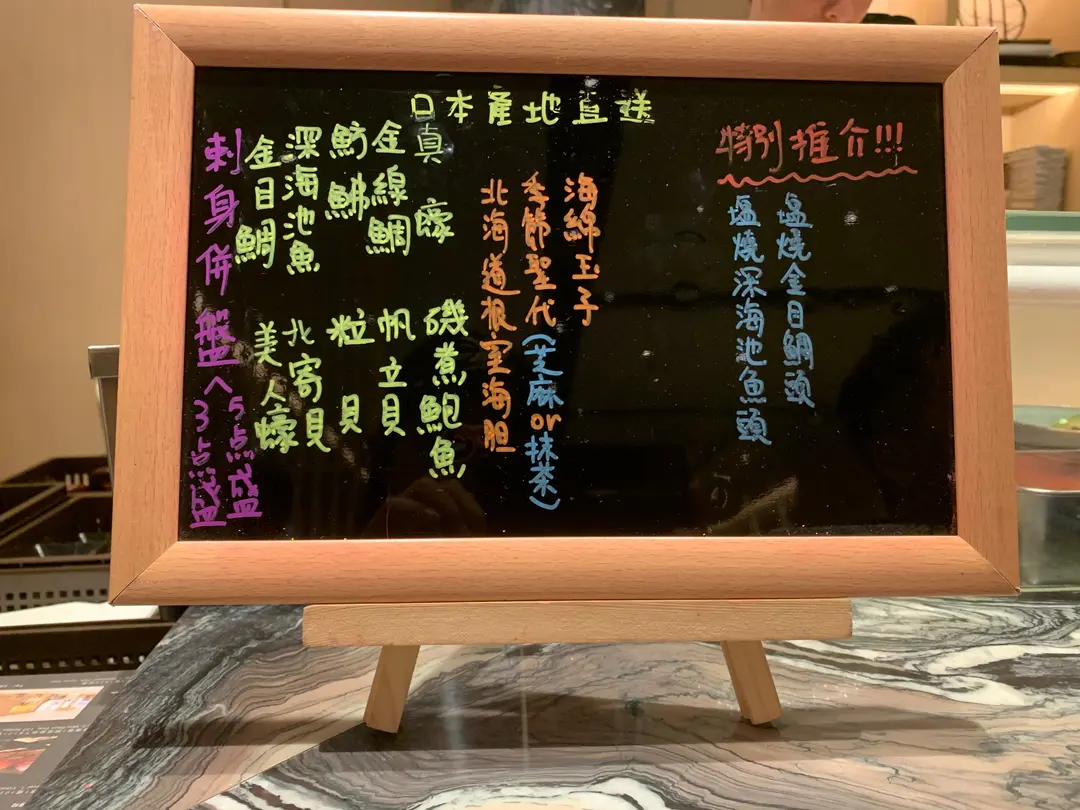 日本產地直送
特別推介!!!
塩燒金目鯛頭
塩燒深海池魚頭
海綿玉子
季節聖代(芝麻or抹茶)
北海道根室海胆
真蠔
磯煮鮑魚
金線鯛
帆立貝
魴鮄
粒貝
深海池魚
北寄貝
金目鯛
美人蠔
刺身併盤へ5点盛
3点盛